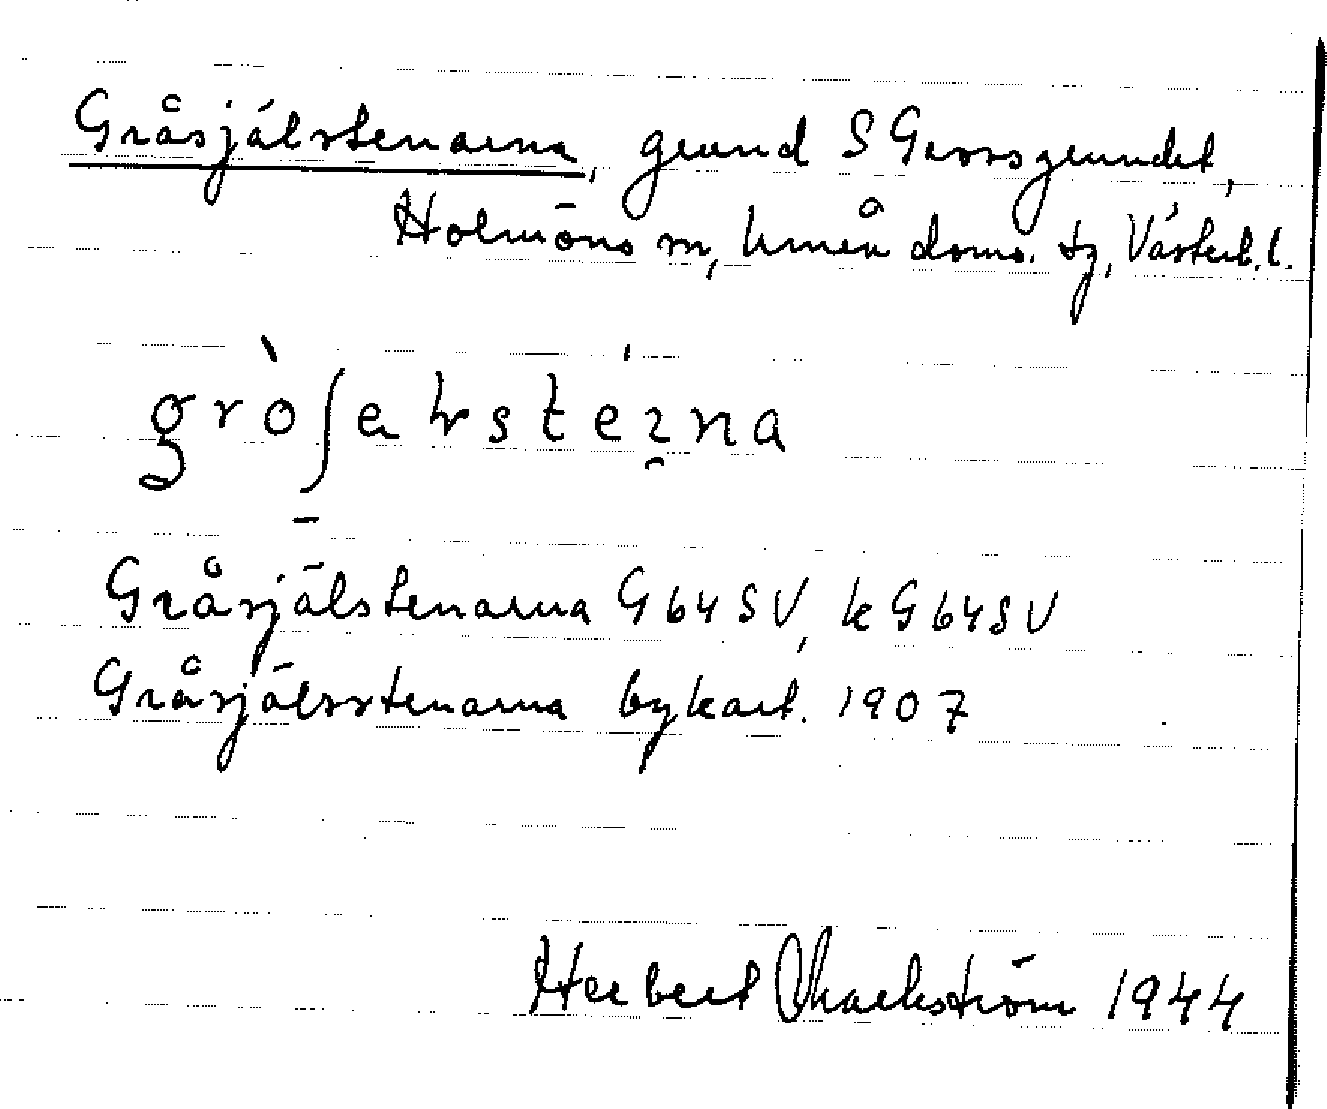 Gråsjälstenarna, grund S Grossgrundet,
Holmöns sn, Umeå doms. tg, Västerb. l.
Gråsjälstenarna G 64 SV, k G 64 SV
Gråsjälsstenarna bykart. 1907
Herbert Markström 1944